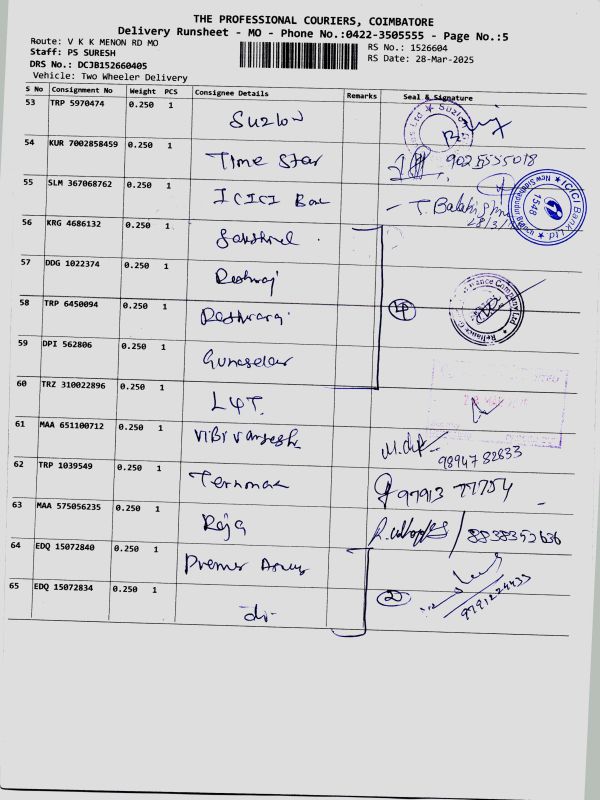 THE PROFESSIONAL COURIERS, COIMBATORE
Delivery Runsheet - MO - Phone No.:0422-3505555 - Page No.:5
Route: V K K MENON RD MO
RS No.: 1526604
Staff: PS SURESH
RS Date: 28-Mar-2025
DRS No.: DCJB152660405
Vehicle: Two Wheeler Delivery
S No Consignment No Weight PCS Consignee Details Remarks Seal & Signature
53 TRP 5970474 0.250 1 Suzlon
54 KUR 7002858459 0.250 1 Time Star
55 SLM 367068762 0.250 1 ICICI Ban T. Balahi
ICICI Bank Ltd. 1548
56 KRG 4686132 0.250 1
57 DDG 1022374 0.250 1
Reliance Co
58 TRP 6450094 0.250 1 4
59 DPI 562806 0.250 1 Gunaselar
60 TRZ 310022896 0.250 1 L&T.
61 MAA 651100712 0.250 1 98947 82833
62 TRP 1039549 0.250 1 97913 77754
63 MAA 575056235 0.250 1 Raja 8838353636
64 EDQ 15072840 0.250 1 Premer
65 EDQ 15072834 0.250 1 -do- 2 9791224433